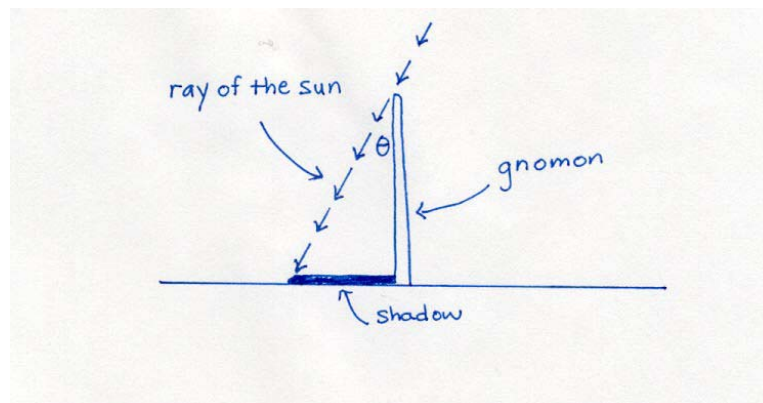 ray of the sun
θ
gnomon
shadow